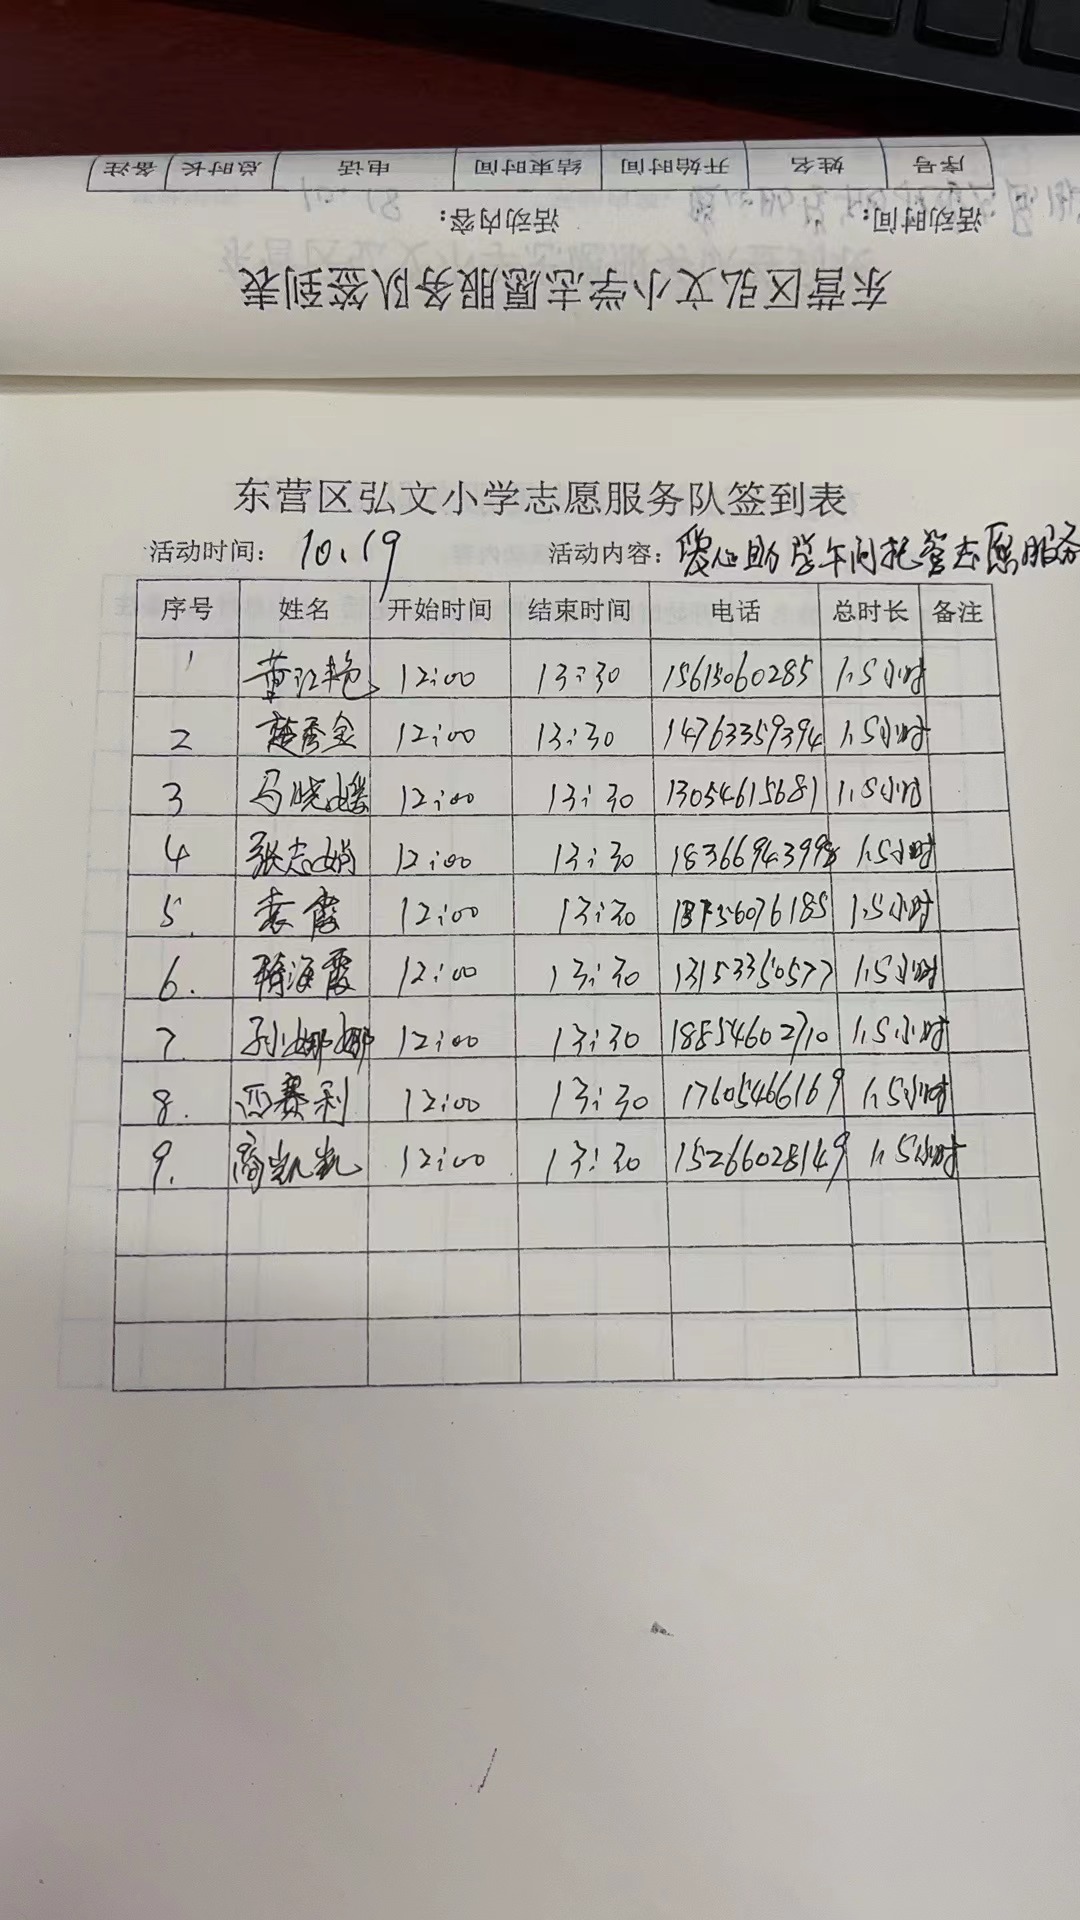 序号 姓名 开始时间 结束时间 电话 总时长 备注
活动时间: 活动内容:
东营区弘文小学志愿服务队签到表
东营区弘文小学志愿服务队签到表
活动时间: 10.19 活动内容: 爱心助学午间托管志愿服务
序号 姓名 开始时间 结束时间 电话 总时长 备注
1 董江艳 12:00 13:30 15615060285 1.5小时
2 楚秀金 12:00 13:30 14763359394 1.5小时
3 马晓媛 12:00 13:30 13054615681 1.5小时
4 张志娟 12:00 13:30 1.5小时
5. 袁霞 12:00 13:30 1.5小时
6. 海霞 12:00 13:30 13153350577 1.5小时
7. 孙娜娜 12:00 13:30 18854602710 1.5小时
8. 赛利 12:00 13:30 17605466169 1.5小时
9. 商凯凯 12:00 13:30 15266028149 1.5小时